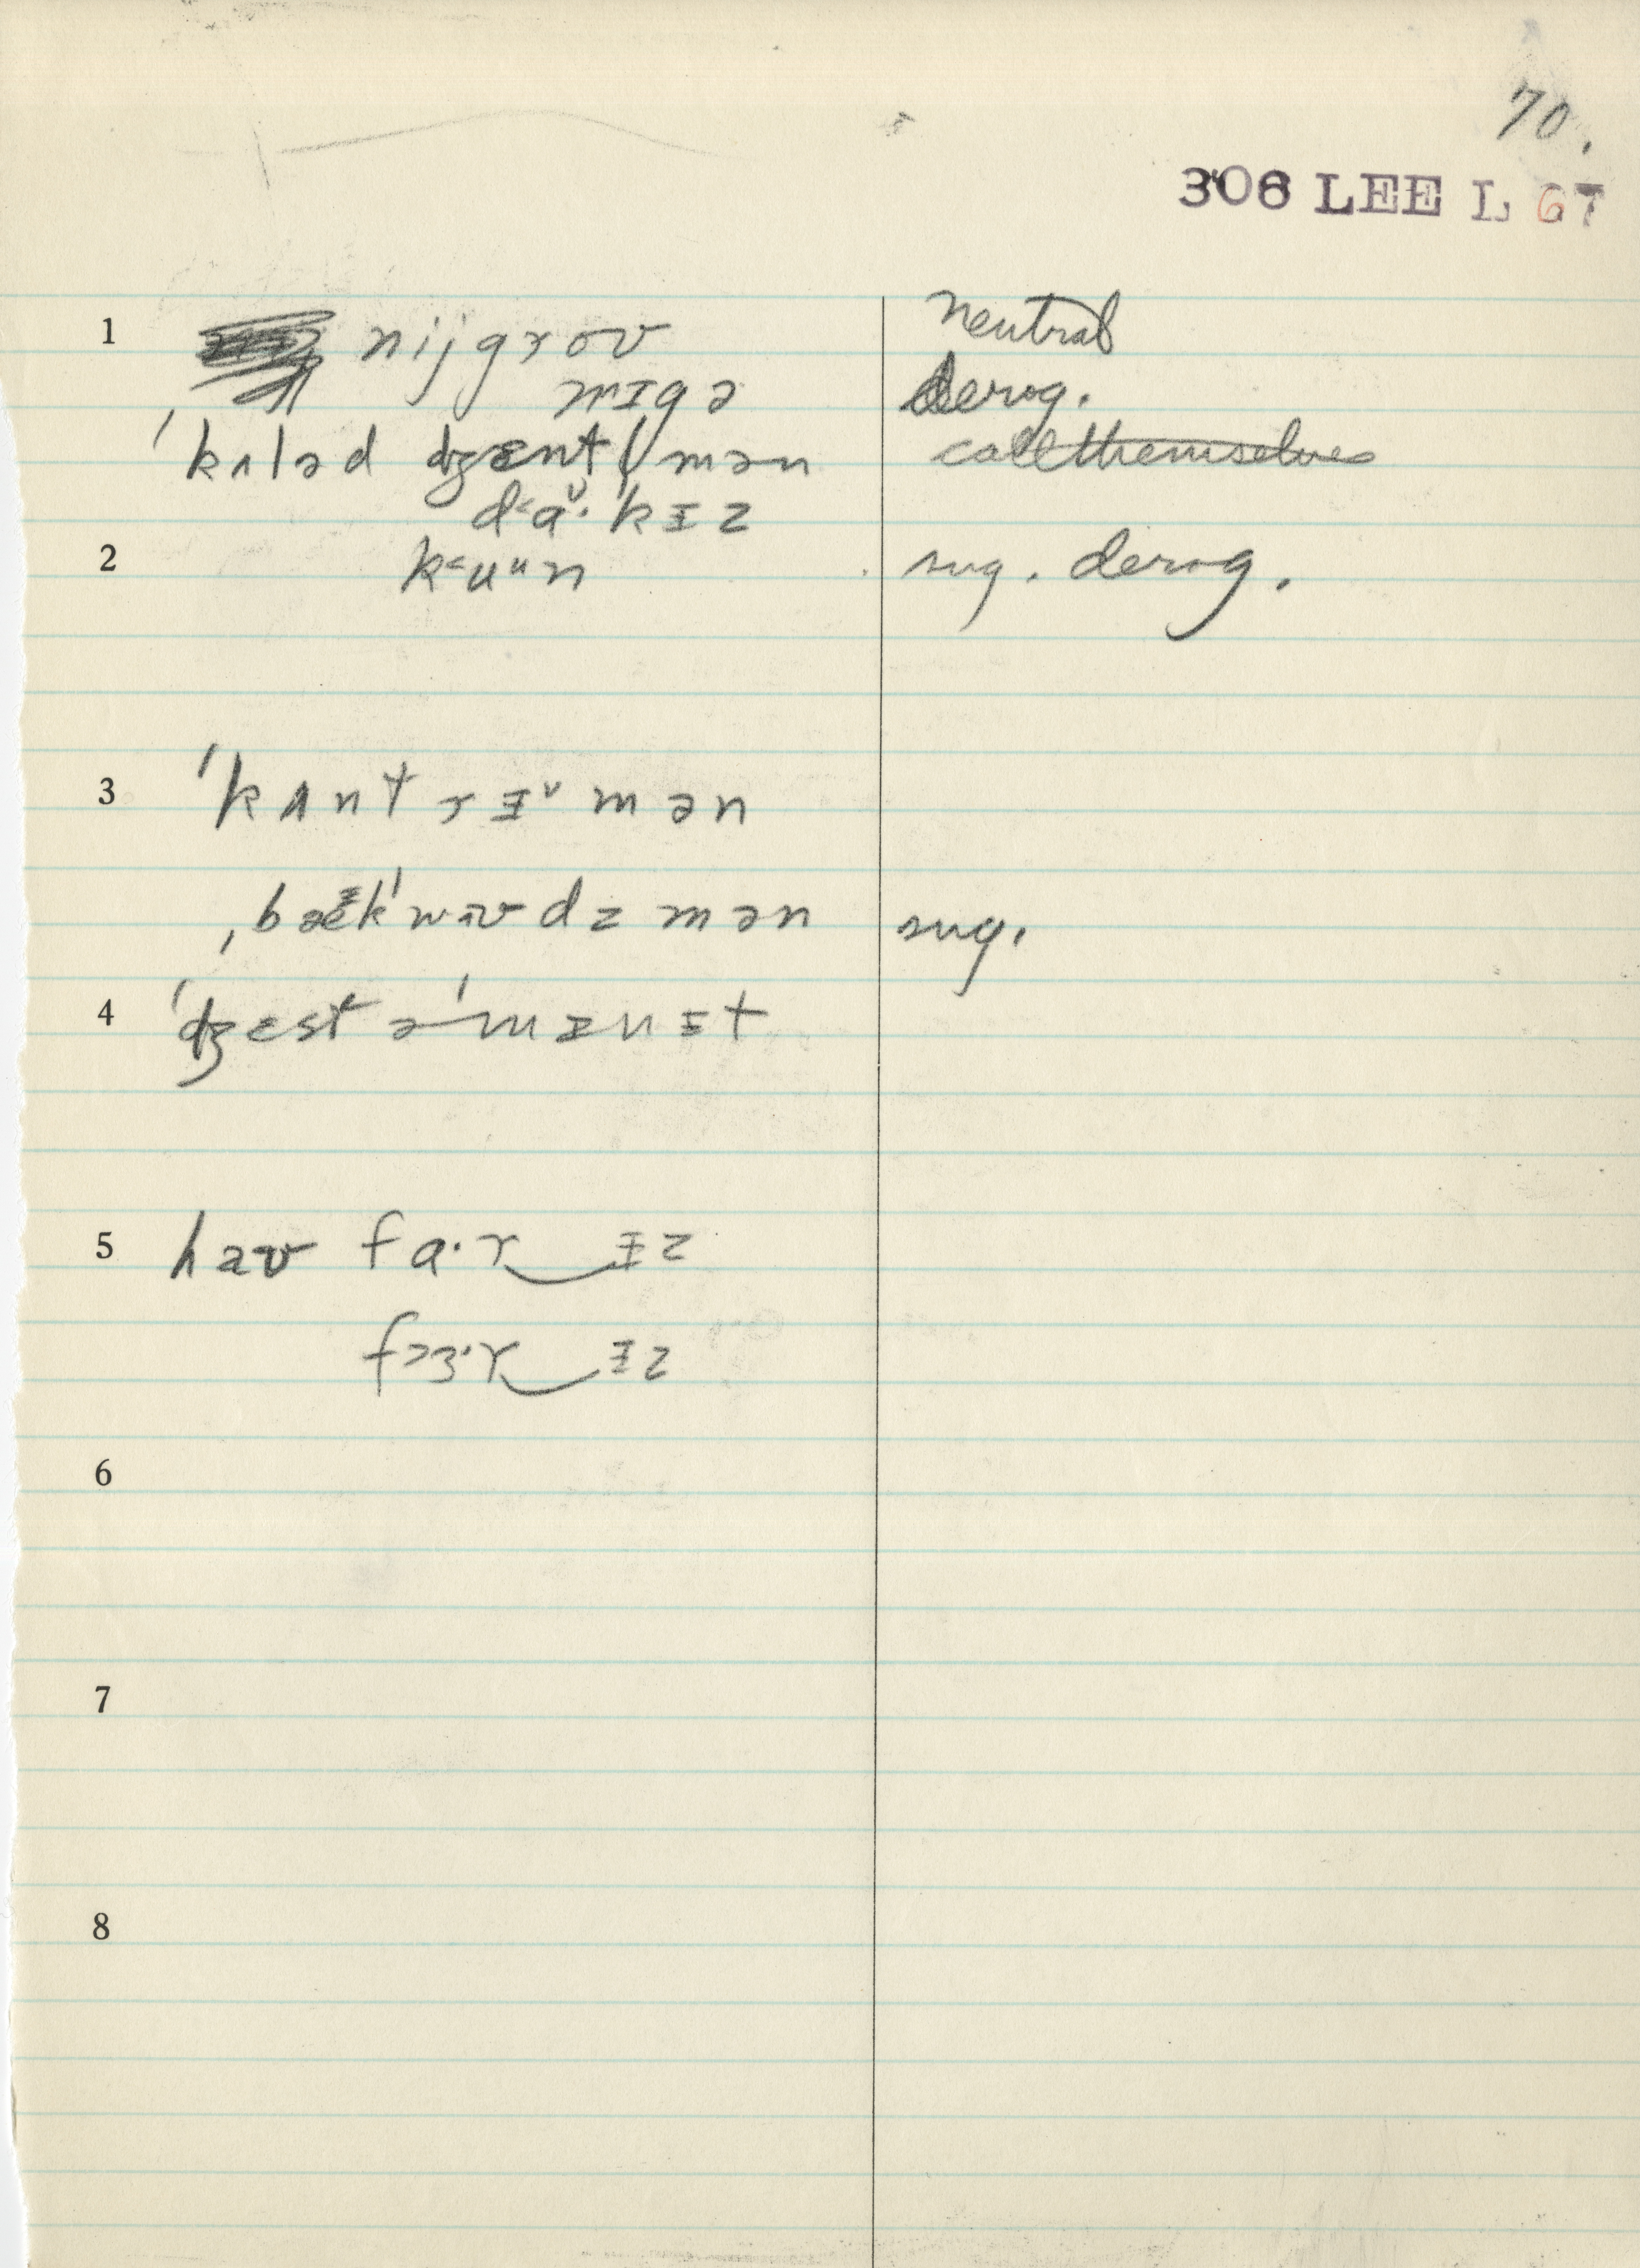 70.
306 LEE L 67
1 nijgroʊ neutral
nɪgə derog.
ˈkʌləd dʒɛntl̩mən call themselves
d˂ɑ˅·ˈkɪz
2 k˂uᵘn sug. derog.
3 ˈkʌntrɨ˅mən
ˌbækˈwɜʊdzmən sug.
4 ˈdʒɛst əˈmɪnɨt
5 haʊ fɑ·r‿ɨz
f˃ɜ·r‿ɨz
6
7
8